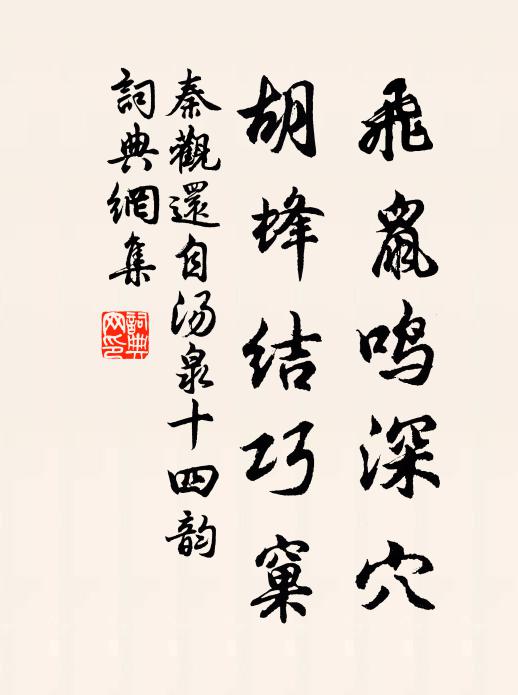 飛鼠鸣深穴
胡蜂结巧窠
秦觀還自汤泉十四韵
詞典網集
詞典网印